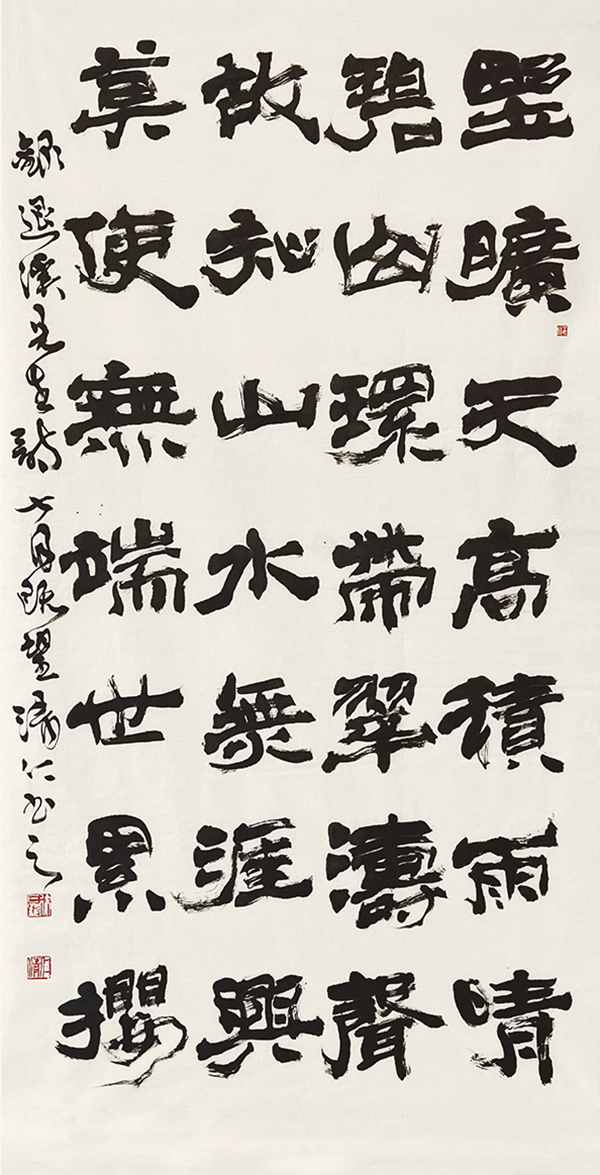 野曠天高積雨晴
碧山環帶翠濤聲
故知山水無涯興
莫使無端世累攖
錄退溪先生詩 七月既望 仁書之